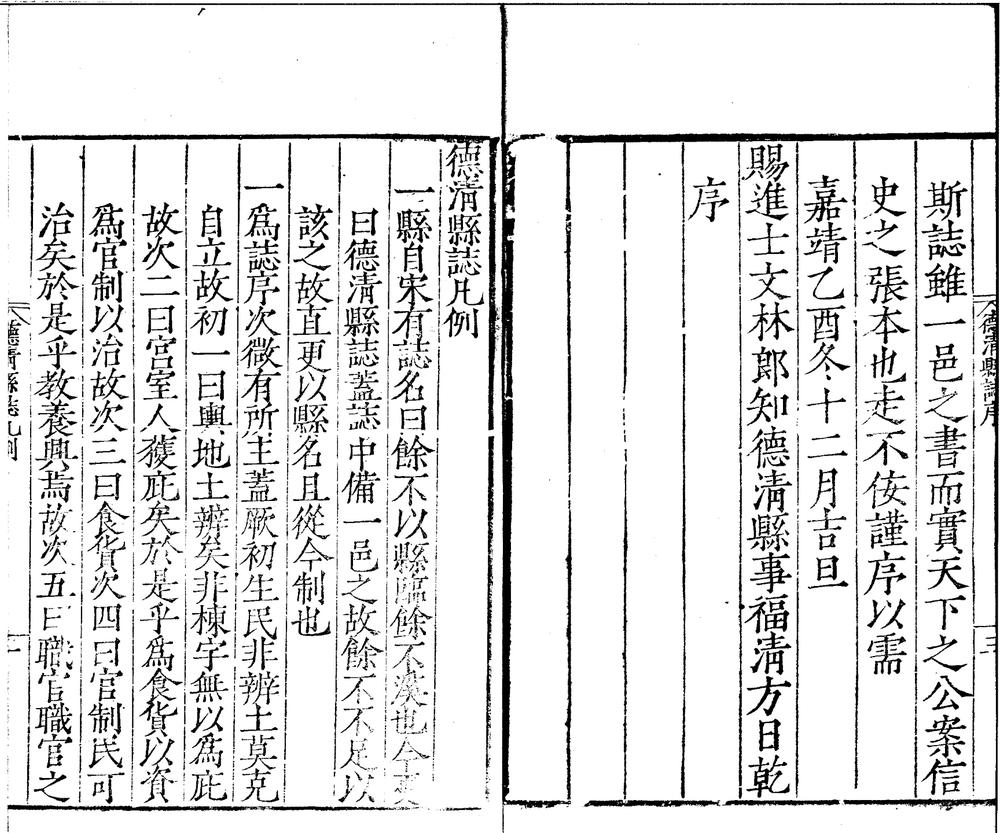 德清縣誌序
三
斯誌雖一邑之書而實天下之公案信
史之張本也走不佞謹序以需
嘉靖乙酉冬十二月吉旦
賜進士文林郎知德清縣事福清方日乾
序
德清縣誌凡例
一縣自宋有誌名曰餘不以縣臨餘不溪也今更
曰德清縣誌蓋誌中備一邑之故餘不不足以
該之故直更以縣名且從今制也
一爲誌序次微有所主蓋厥初生民非辨土莫克
自立故初一曰輿地土辨矣非棟宇無以爲庇
故次二曰宮室人獲庇矣於是乎爲食貨以資
爲官制以治故次三曰食貨次四曰官制民可
治矣於是乎教養興焉故次五曰職官職官之
德清縣誌凡例
一